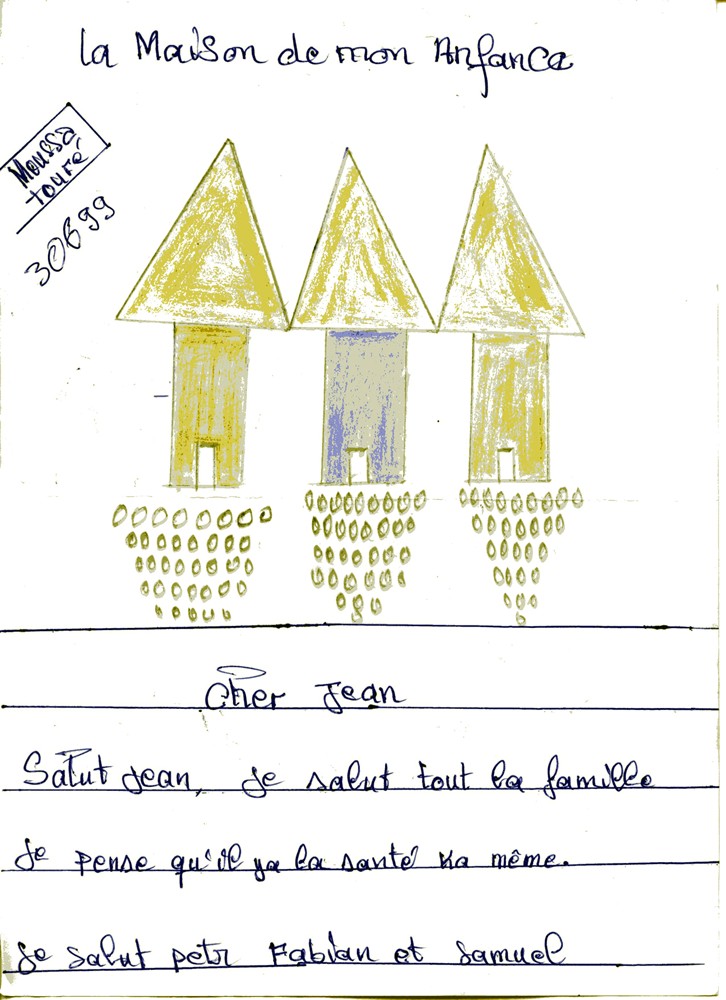 la Maison de mon Anfance
Moussa
touré
30699
Cher Jean
Salut Jean, Je salut tout la famille
Je pense qu'il ya la santé Ka même.
Je salut petr Fabian et Samuel